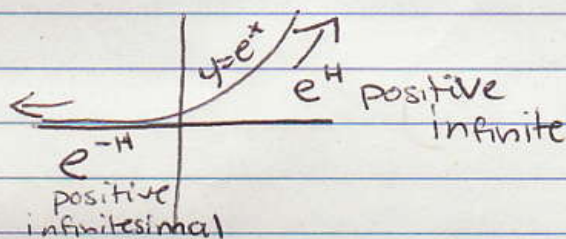 y=eˣ
e^H positive
infinite
e^-H
positive
infinitesimal